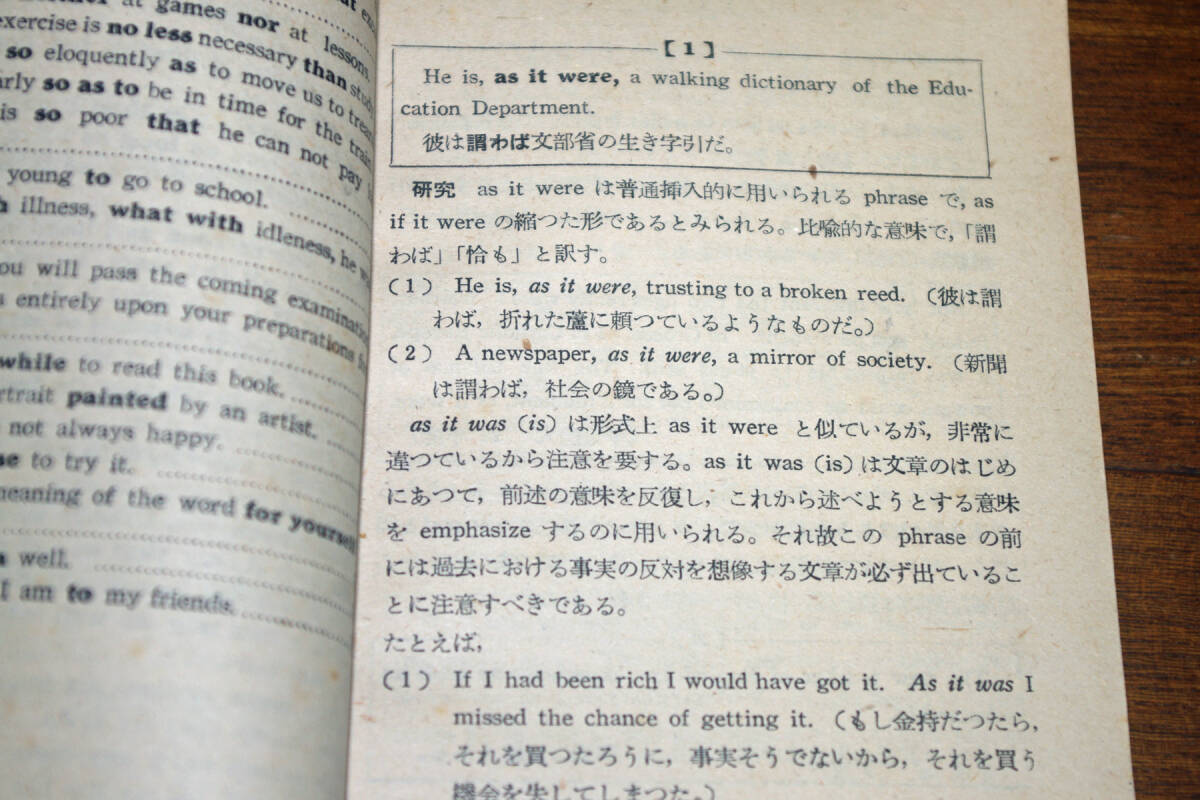 at games nor at lessons.
exercise is no less necessary than
so eloquently as to move us to
so as to be in time for the train
is so poor that he can not pay
young to go to school.
illness, what with idleness, he
you will pass the coming
entirely upon your preparations
while to read this book.
painted by an artist.
not always happy.
to try it.
meaning of the word for yourself
well.
I am to my friends.
【1】
He is, as it were, a walking dictionary of the Edu-
cation Department.
彼は謂わば文部省の生き字引だ。
研究 as it were は普通挿入的に用いられる phrase で, as
if it were の縮つた形であるとみられる。比喩的な意味で,「謂
わば」「恰も」と訳す。
(1) He is, as it were, trusting to a broken reed. (彼は謂
わば, 折れた蘆に頼つているようなものだ。)
(2) A newspaper, as it were, a mirror of society. (新聞
は謂わば, 社会の鏡である。)
as it was (is) は形式上 as it were と似ているが, 非常に
違つているから注意を要する。as it was (is) は文章のはじめ
にあつて, 前述の意味を反復し, これから述べようとする意味
を emphasize するのに用いられる。それ故この phrase の前
には過去における事実の反対を想像する文章が必ず出ているこ
とに注意すべきである。
たとえば,
(1) If I had been rich I would have got it. As it was I
missed the chance of getting it. (もし金持だつたら,
それを買つたろうに, 事実そうでないから, それを買う
機会を失してしまつた。)